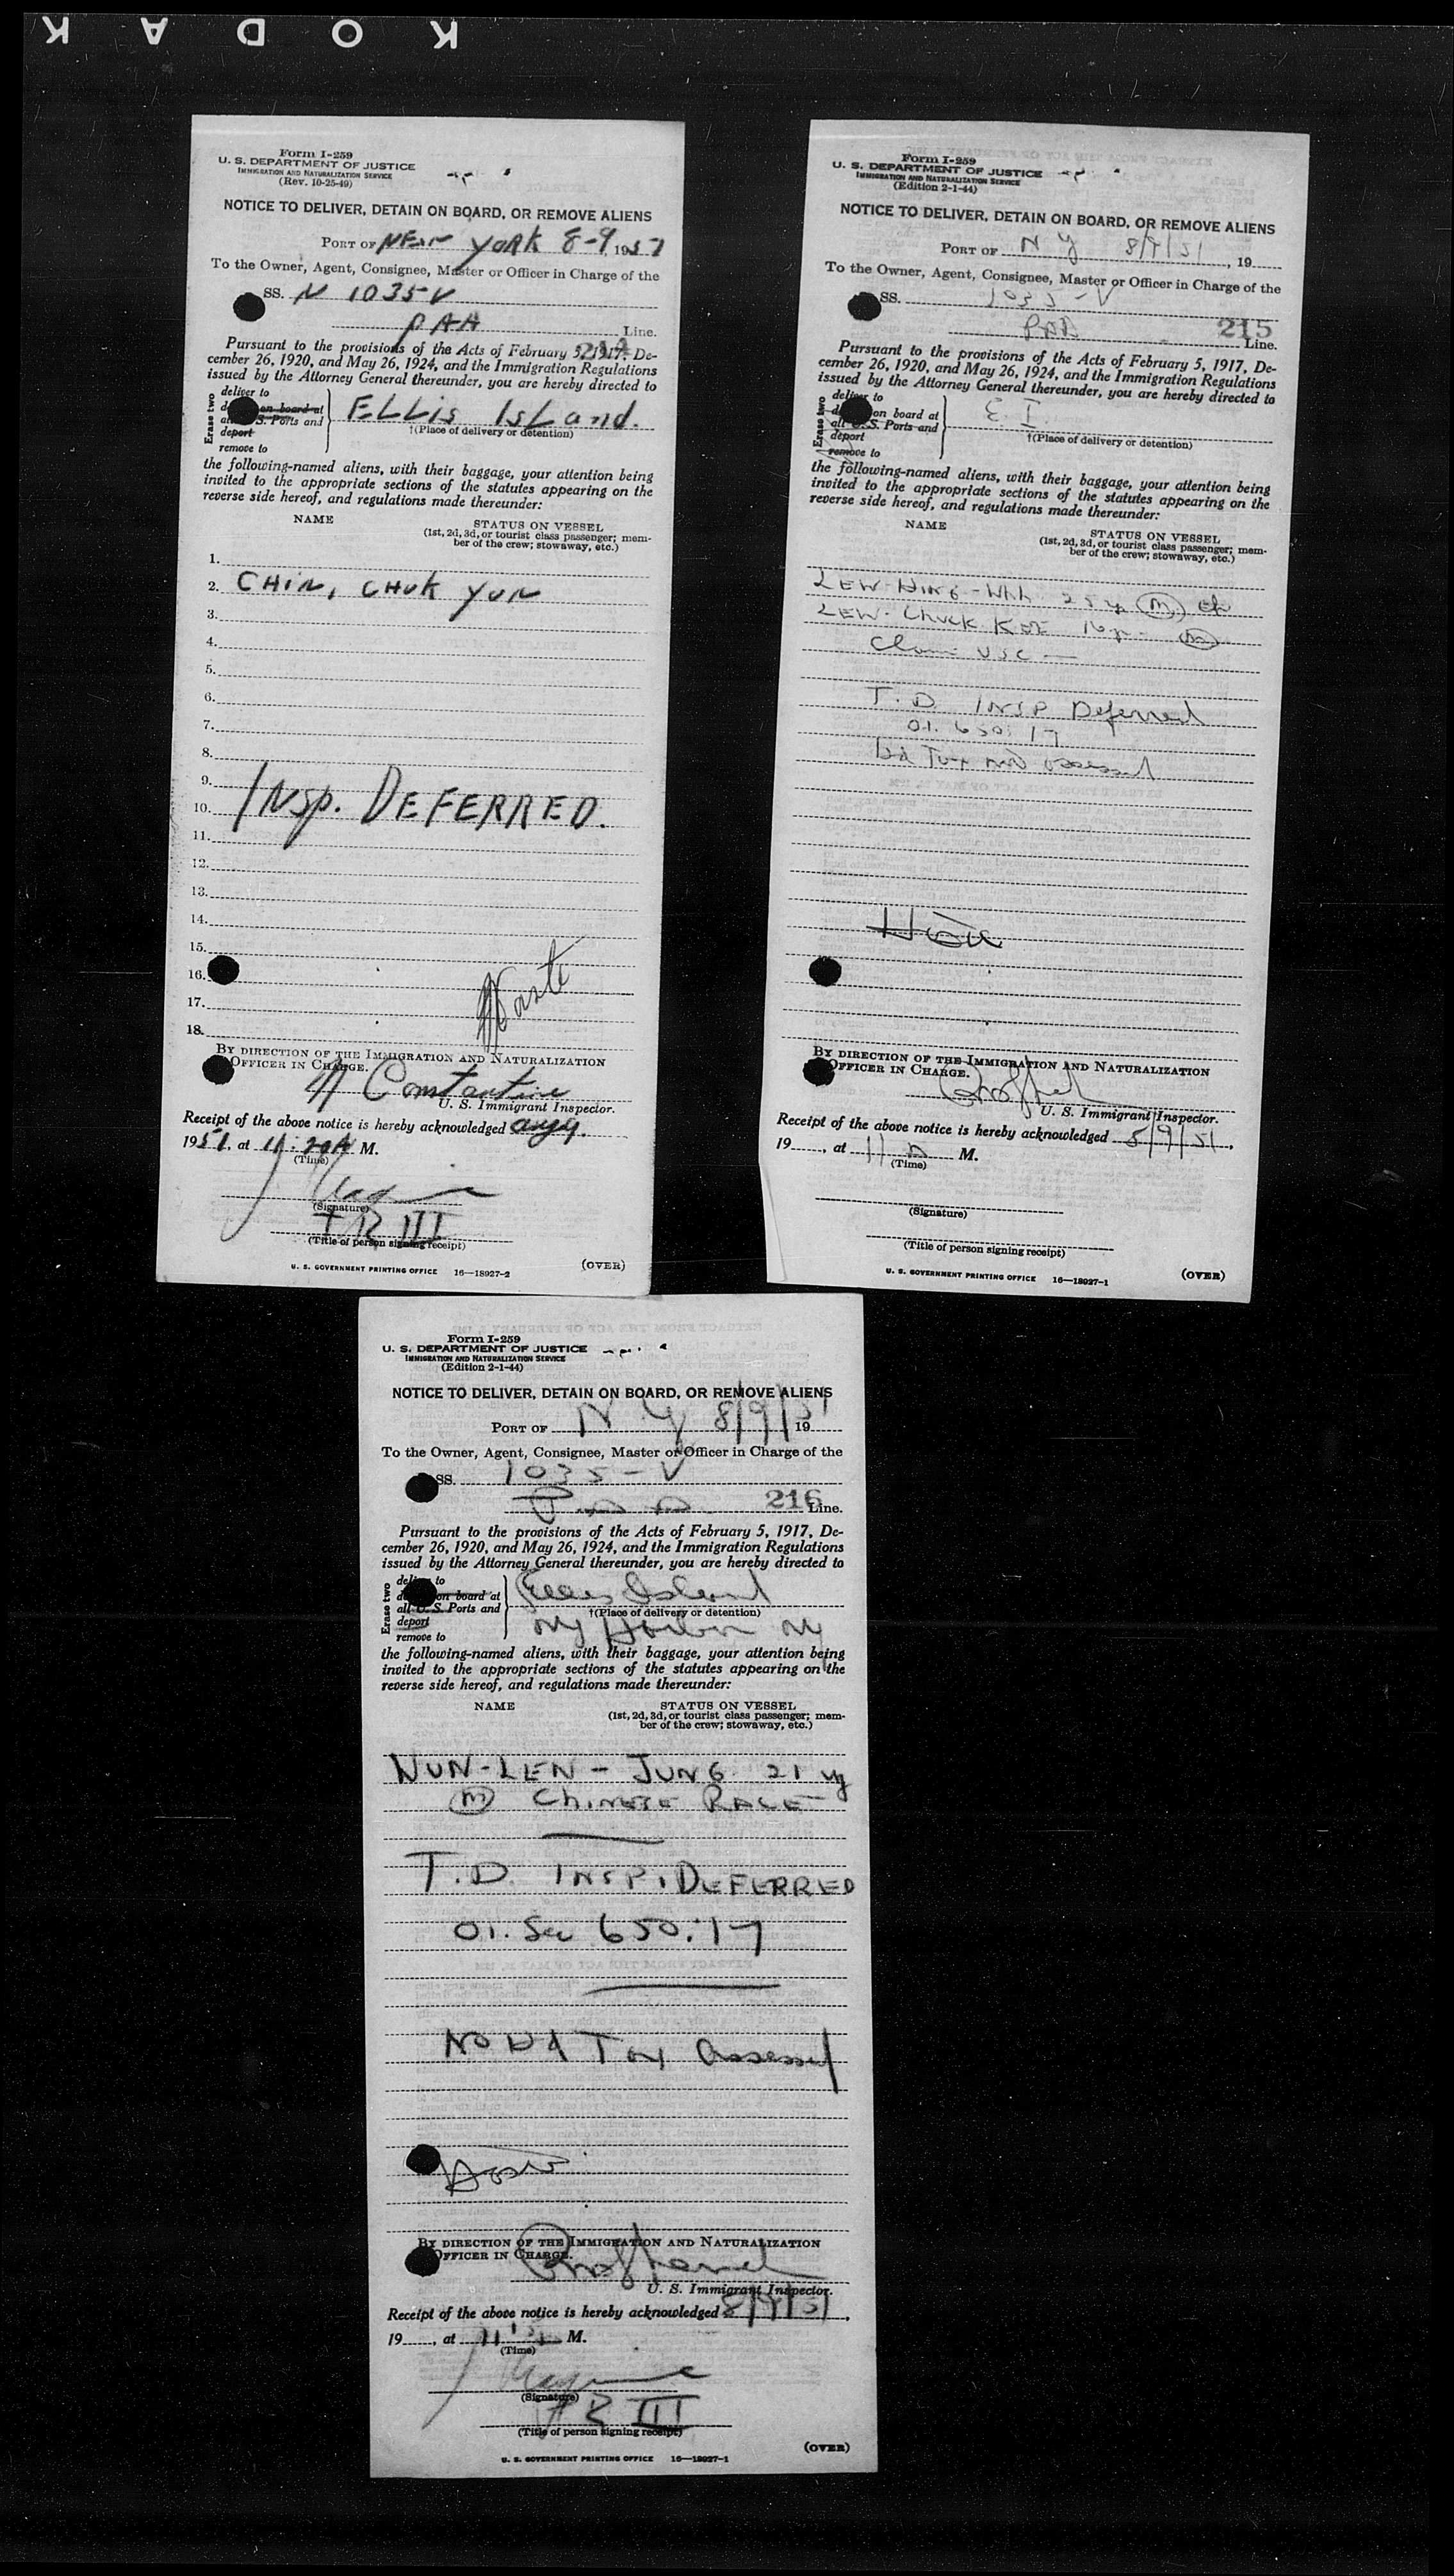 KODAK
Form I-259
U. S. DEPARTMENT OF JUSTICE
IMMIGRATION AND NATURALIZATION SERVICE
(Rev. 10-25-49)
NOTICE TO DELIVER, DETAIN ON BOARD, OR REMOVE ALIENS
PORT OF NEW YORK 8-9, 1951
To the Owner, Agent, Consignee, Master or Officer in Charge of the
SS. N 1035V
PAA Line.
Pursuant to the provisions of the Acts of February 5, 1917, De-
cember 26, 1920, and May 26, 1924, and the Immigration Regulations
issued by the Attorney General thereunder, you are hereby directed to
Erase two
deliver to
on board at
S. Ports and
deport
remove to
ELLis IsLand.
†(Place of delivery or detention)
the following-named aliens, with their baggage, your attention being
invited to the appropriate sections of the statutes appearing on the
reverse side hereof, and regulations made thereunder:
NAME
STATUS ON VESSEL
(1st, 2d, 3d, or tourist class passenger; mem-
ber of the crew; stowaway, etc.)
1.
2. CHIN, CHUK YUN
3.
4.
5.
6.
7.
8.
9.
10. INSp. DEFERRED.
11.
12.
13.
14.
15.
16.
17.
18.
BY DIRECTION OF THE IMMIGRATION AND NATURALIZATION
OFFICER IN CHARGE.
Constantine
U. S. Immigrant Inspector.
Receipt of the above notice is hereby acknowledged Aug 9.
1951, at 11:20A M.
(Time)
(Signature)
(Title of person signing receipt)
(OVER)
U. S. GOVERNMENT PRINTING OFFICE 16—18927-2
Form I-259
U. S. DEPARTMENT OF JUSTICE
IMMIGRATION AND NATURALIZATION SERVICE
(Edition 2-1-44)
NOTICE TO DELIVER, DETAIN ON BOARD, OR REMOVE ALIENS
PORT OF N Y 8/9/51, 19
To the Owner, Agent, Consignee, Master or Officer in Charge of the
SS. 1035-V
PAA 215 Line.
Pursuant to the provisions of the Acts of February 5, 1917, De-
cember 26, 1920, and May 26, 1924, and the Immigration Regulations
issued by the Attorney General thereunder, you are hereby directed to
Erase two
deliver to
on board at
all U. S. Ports and
deport
remove to
E. I.
†(Place of delivery or detention)
the following-named aliens, with their baggage, your attention being
invited to the appropriate sections of the statutes appearing on the
reverse side hereof, and regulations made thereunder:
NAME
STATUS ON VESSEL
(1st, 2d, 3d, or tourist class passenger; mem-
ber of the crew; stowaway, etc.)
LEW-HING-WAH 25 y (M) Ch
LEW-Chuck KOE 16 y (M)
Claim USC —
T. D. INSP Deferred
01. 650: 17
Hd Tax not assessed
BY DIRECTION OF THE IMMIGRATION AND NATURALIZATION
OFFICER IN CHARGE.
U. S. Immigrant Inspector.
Receipt of the above notice is hereby acknowledged 8/9/51,
19, at 11 A M.
(Time)
(Signature)
(Title of person signing receipt)
U. S. GOVERNMENT PRINTING OFFICE 16—18927-1
(OVER)
Form I-259
U. S. DEPARTMENT OF JUSTICE
IMMIGRATION AND NATURALIZATION SERVICE
(Edition 2-1-44)
NOTICE TO DELIVER, DETAIN ON BOARD, OR REMOVE ALIENS
PORT OF N Y 8/9/51 19
To the Owner, Agent, Consignee, Master or Officer in Charge of the
SS. 1035-V
P A A 216 Line.
Pursuant to the provisions of the Acts of February 5, 1917, De-
cember 26, 1920, and May 26, 1924, and the Immigration Regulations
issued by the Attorney General thereunder, you are hereby directed to
Erase two
deliver to
on board at
all U. S. Ports and
deport
remove to
Ellis Island
†(Place of delivery or detention)
NY Harbor NY
the following-named aliens, with their baggage, your attention being
invited to the appropriate sections of the statutes appearing on the
reverse side hereof, and regulations made thereunder:
NAME
STATUS ON VESSEL
(1st, 2d, 3d, or tourist class passenger; mem-
ber of the crew; stowaway, etc.)
WUN-LEN - JUNG 21 y
(M) CHINESE RACE
T. D. INSP. DEFERRED
01. Sec 650:17
NO Hd Tax assessed
BY DIRECTION OF THE IMMIGRATION AND NATURALIZATION
OFFICER IN CHARGE.
U. S. Immigrant Inspector.
Receipt of the above notice is hereby acknowledged 8/9/51,
19, at M.
(Time)
(Signature)
(Title of person signing receipt)
(OVER)
U. S. GOVERNMENT PRINTING OFFICE 16—18927-1